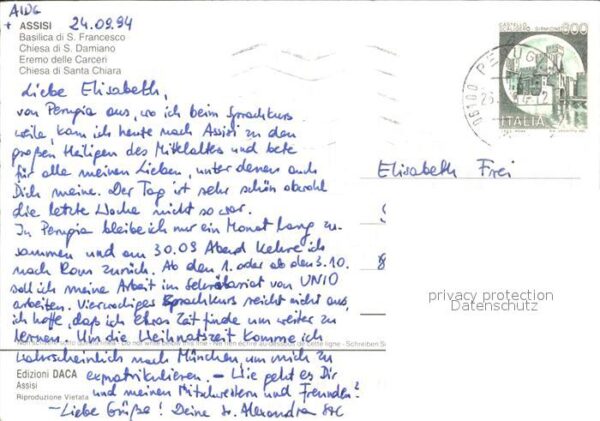 AIDG
+ ASSISI 24.09.94
Basilica di S. Francesco
Chiesa di S. Damiano
Eremo delle Carceri
Chiesa di Santa Chiara
Liebe Elisabeth,
von Perugia aus, wo ich beim Sprachkurs
weile, kam ich heute nach Assisi zu den
großen Heiligen des Mittelalters und bete
für alle meinen Lieben, unter denen auch
Dich meine. Der Tag ist sehr schön obwohl
die letzte Woche nicht so war.
In Perugia bleibe ich nur ein Monat lang zu-
sammen und am 30.09 Abend kehre ich
nach Rom zurück. Ab den 1. oder ab den 3.10.
soll ich meine Arbeit im Sekretariat von UNIO
arbeiten. Vierwochiges Sprachkurs reicht nicht aus,
ich hoffe, daß ich etwas Zeit finde um weiter zu
lernen. Um die Weihnatszeit komme ich
wahrscheinlich nach München, um mich zu
exmatrikulieren. – Wie geht es Dir
und meinen Mitschwestern und Freunden?
– Liebe Grüße! Deine sr. Alexandra
Edizioni DACA
Assisi
Riproduzione Vietata
800
ITALIA
06100 PERUGIA
Elisabeth Frei
privacy protection
Datenschutz